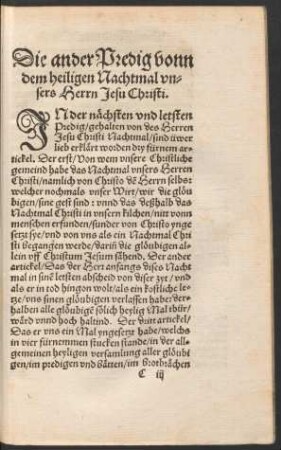 Die ander Predig vonn
dem heiligen Nachtmal vn-
sers Herrn Jesu Christi.
IN der nächsten vnd letsten
Predig/gehalten von des Herren
Jesu Christi Nachtmal/sind üwer
lieb erklärt worden dry fürnem ar-
tickel. Der erst/Von wem vnsere Christliche
gemeind habe das Nachtmal vnsers Herren
Christi/namlich von Christo dē Herrn selbs:
welcher nochmals vnser Wirt/wir die glöu
bigen/sine gest sind: vnnd das deßhalb das
Nachtmal Christi in vnsern kilchen/nitt vonn
menschen erfunden/sunder von Christo ynge
setzt sye/vnd von vns als ein Nachtmal Chri
sti begangen werde/darin̄ die glöubigen al-
lein vff Christum Jesum sähend. Der ander
artickel/Das der Herr anfangs dises Nacht
mal in sinē letsten abscheid von diser zyt/vnd
als er in tod hingon wolt/als ein kostliche le-
tze/vns sinen glöubigen verlassen habe: der-
halben alle glöubigē sölich heylig Mal thür/
wärd vnnd hoch haltind. Der dritt artickel/
Das er vns ein Mal yngesetzt habe/welchs
in vier fürnemmen stucken stande/in der all-
gemeinen heyligen versamlung aller glöubi
gen/im predigen vnd bätten/im brotbrächen
C iij